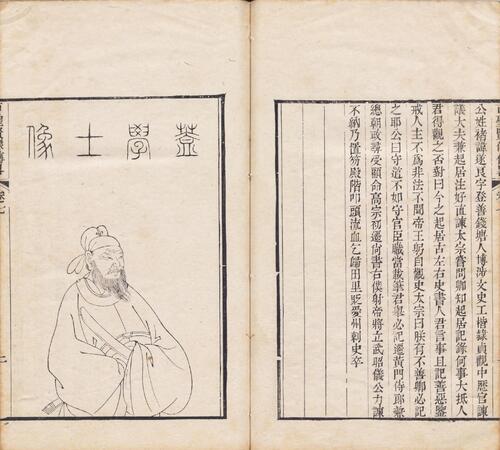 公姓褚諱遂良字登善錢塘人博涉文史工楷隸貞觀中歷官諫
議大夫兼起居注好直諫太宗嘗問卿知起居記錄何事大抵人
君得觀之否對曰今之起居古左右史書人君言事且記善惡鑒
戒人主不爲非法不聞帝王躬自觀史太宗曰朕有不善卿必記
之耶公曰守道不如守官臣職當載筆君舉必記遷黃門侍郎兼
總朝政尋受顧命高宗初遷尚書右僕射帝將立武昭儀公力諫
不納乃置笏殿階叩頭流血乞歸田里貶愛州刺史卒
學士像
卷七